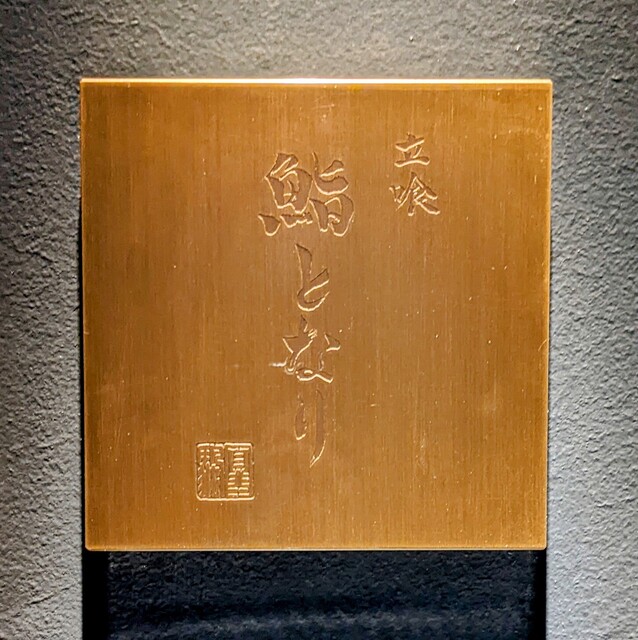 立喰
鮨となり